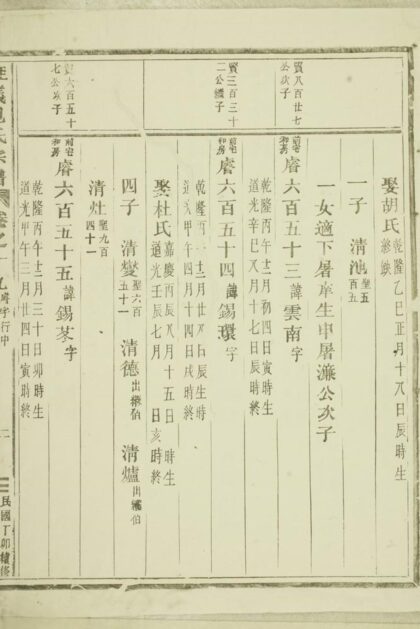 娶胡氏 乾隆乙巳正月十八日辰時生
終缺
一子 清池 聖五百五
一女適下屠庠生申屠濂公次子
賢八百廿七公次子
前宅和房 睿六百五十三 諱雲南 字
乾隆丙午十二月初四日寅時生
道光辛巳八月十七日辰時終
賢三百三十二公繼子
前宅和房 睿六百五十四 諱錫環 字
十二月廿八日辰時生
道光甲午四月十四日戌時終
娶杜氏 嘉慶丙辰八月十五日時生
道光壬辰七月日亥時終
四子 清燮 聖六百五十一 清德 出繼伯 清爐 出繼伯
清灶 聖九百四十一
六百五十七公次子
前宅和房 睿六百五十五 諱錫 字
乾隆丙午十二月三十日卯時生
道光甲午三月廿四日寅時終
氏宗譜 卷之一 九 睿字行中 二
民國丁卯續修